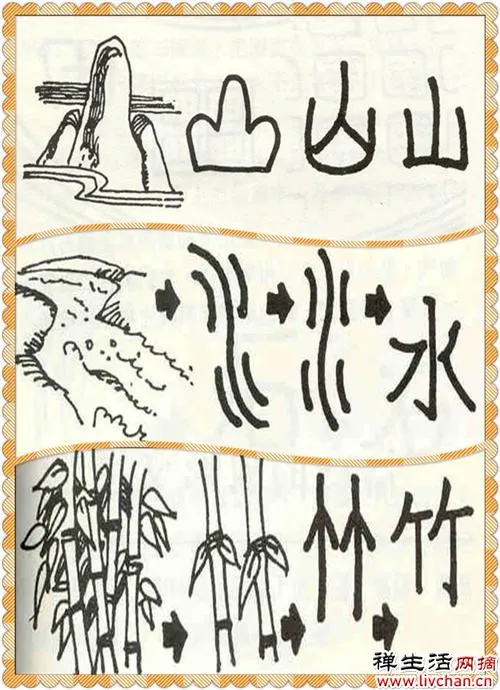 山
水
竹
禅生活网摘
www.livchan.cn